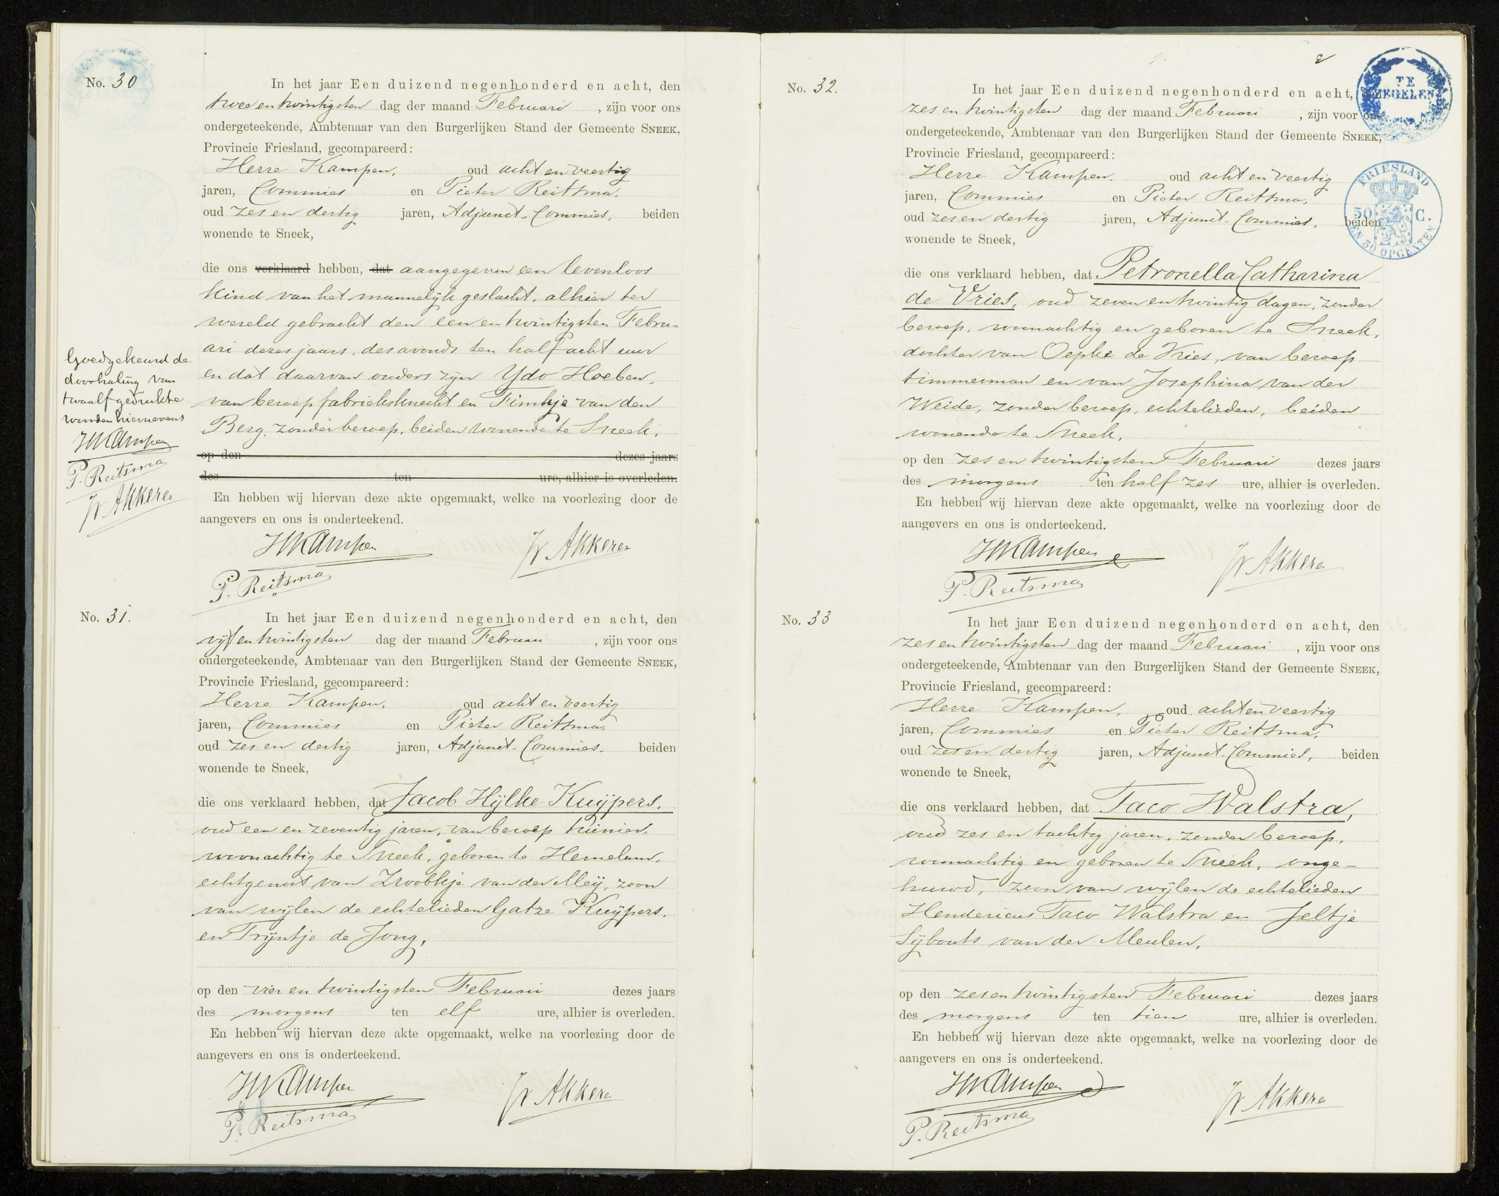 No. 30
In het jaar Een duizend negenhonderd en acht, den
twee en twintigsten dag der maand Februari, zijn voor ons
ondergeteekende, Ambtenaar van den Burgerlijken Stand der Gemeente SNEEK,
Provincie Friesland, gecompareerd:
Herre Kampen, oud acht en veertig
jaren, Commies en Pieter Reitsma,
oud zes en dertig jaren, Adjunct-Commies, beiden
wonende te Sneek,
die ons verklaard hebben, dat aangegeven een levenloos
kind van het mannelijk geslacht, alhier ter
wereld gebracht den een en twintigsten Febru-
ari dezes jaars, des avonds ten half acht uur
en dat daarvan ouders zijn Ydo Hoeben,
van beroep fabrieksknecht en Fimkje van den
Berg, zonder beroep, beiden wonende te Sneek.
op den dezes jaars
des ten ure, alhier is overleden.
En hebben wij hiervan deze akte opgemaakt, welke na voorlezing door de
aangevers en ons is onderteekend.
HKampen
P. Reitsma
Jv Akkere
Goedgekeurd de
doorhaling van
twaalf gedrukte
woorden hiernevens
HKampen
P. Reitsma
Jv Akkere
No. 31.
In het jaar Een duizend negenhonderd en acht, den
vijf en twintigsten dag der maand Februari, zijn voor ons
ondergeteekende, Ambtenaar van den Burgerlijken Stand der Gemeente SNEEK,
Provincie Friesland, gecompareerd:
Herre Kampen, oud acht en veertig
jaren, Commies en Pieter Reitsma,
oud zes en dertig jaren, Adjunct-Commies, beiden
wonende te Sneek,
die ons verklaard hebben, dat Jacob Hylke Kuijpers,
oud een en zeventig jaren, van beroep tuinier,
woonachtig te Sneek, geboren te Hemelum,
echtgenoot van Zwobkje van der Meij, zoon
van wijlen de echtelieden Gatze Kuijpers
en Trijntje de Jong,
op den vier en twintigsten Februari dezes jaars
des morgens ten elf ure, alhier is overleden.
En hebben wij hiervan deze akte opgemaakt, welke na voorlezing door de
aangevers en ons is onderteekend.
HKampen
P. Reitsma
Jv Akkere
2
TE
ZEGELEN
FRIESLAND
50 C.
EN 50 OPCENTEN
No. 32.
In het jaar Een duizend negenhonderd en acht,
zes en twintigsten dag der maand Februari, zijn voor ons
ondergeteekende, Ambtenaar van den Burgerlijken Stand der Gemeente SNEEK,
Provincie Friesland, gecompareerd:
Herre Kampen, oud acht en veertig
jaren, Commies en Pieter Reitsma,
oud zes en dertig jaren, Adjunct-Commies, beiden
wonende te Sneek,
die ons verklaard hebben, dat Petronella Catharina
de Vries, oud zeven en twintig dagen, zonder
beroep, woonachtig en geboren te Sneek,
dochter van Oepke de Vries, van beroep
timmerman en van Josephina van der
Weide, zonder beroep, echtelieden, beiden
wonende te Sneek,
op den zes en twintigsten Februari dezes jaars
des morgens ten half zes ure, alhier is overleden.
En hebben wij hiervan deze akte opgemaakt, welke na voorlezing door de
aangevers en ons is onderteekend.
HKampen
P. Reitsma
Jv Akkere
No. 33
In het jaar Een duizend negenhonderd en acht, den
zes en twintigsten dag der maand Februari, zijn voor ons
ondergeteekende, Ambtenaar van den Burgerlijken Stand der Gemeente SNEEK,
Provincie Friesland, gecompareerd:
Herre Kampen, oud acht en veertig
jaren, Commies en Pieter Reitsma,
oud zes en dertig jaren, Adjunct-Commies, beiden
wonende te Sneek,
die ons verklaard hebben, dat Taco Walstra,
oud zes en tachtig jaren, zonder beroep,
woonachtig en geboren te Sneek, onge-
huwd, zoon van wijlen de echtelieden
Hendericus Taco Walstra en Jeltje
Sijbouts van der Meulen,
op den zes en twintigsten Februari dezes jaars
des morgens ten tien ure, alhier is overleden.
En hebben wij hiervan deze akte opgemaakt, welke na voorlezing door de
aangevers en ons is onderteekend.
HKampen
P. Reitsma
Jv Akkere